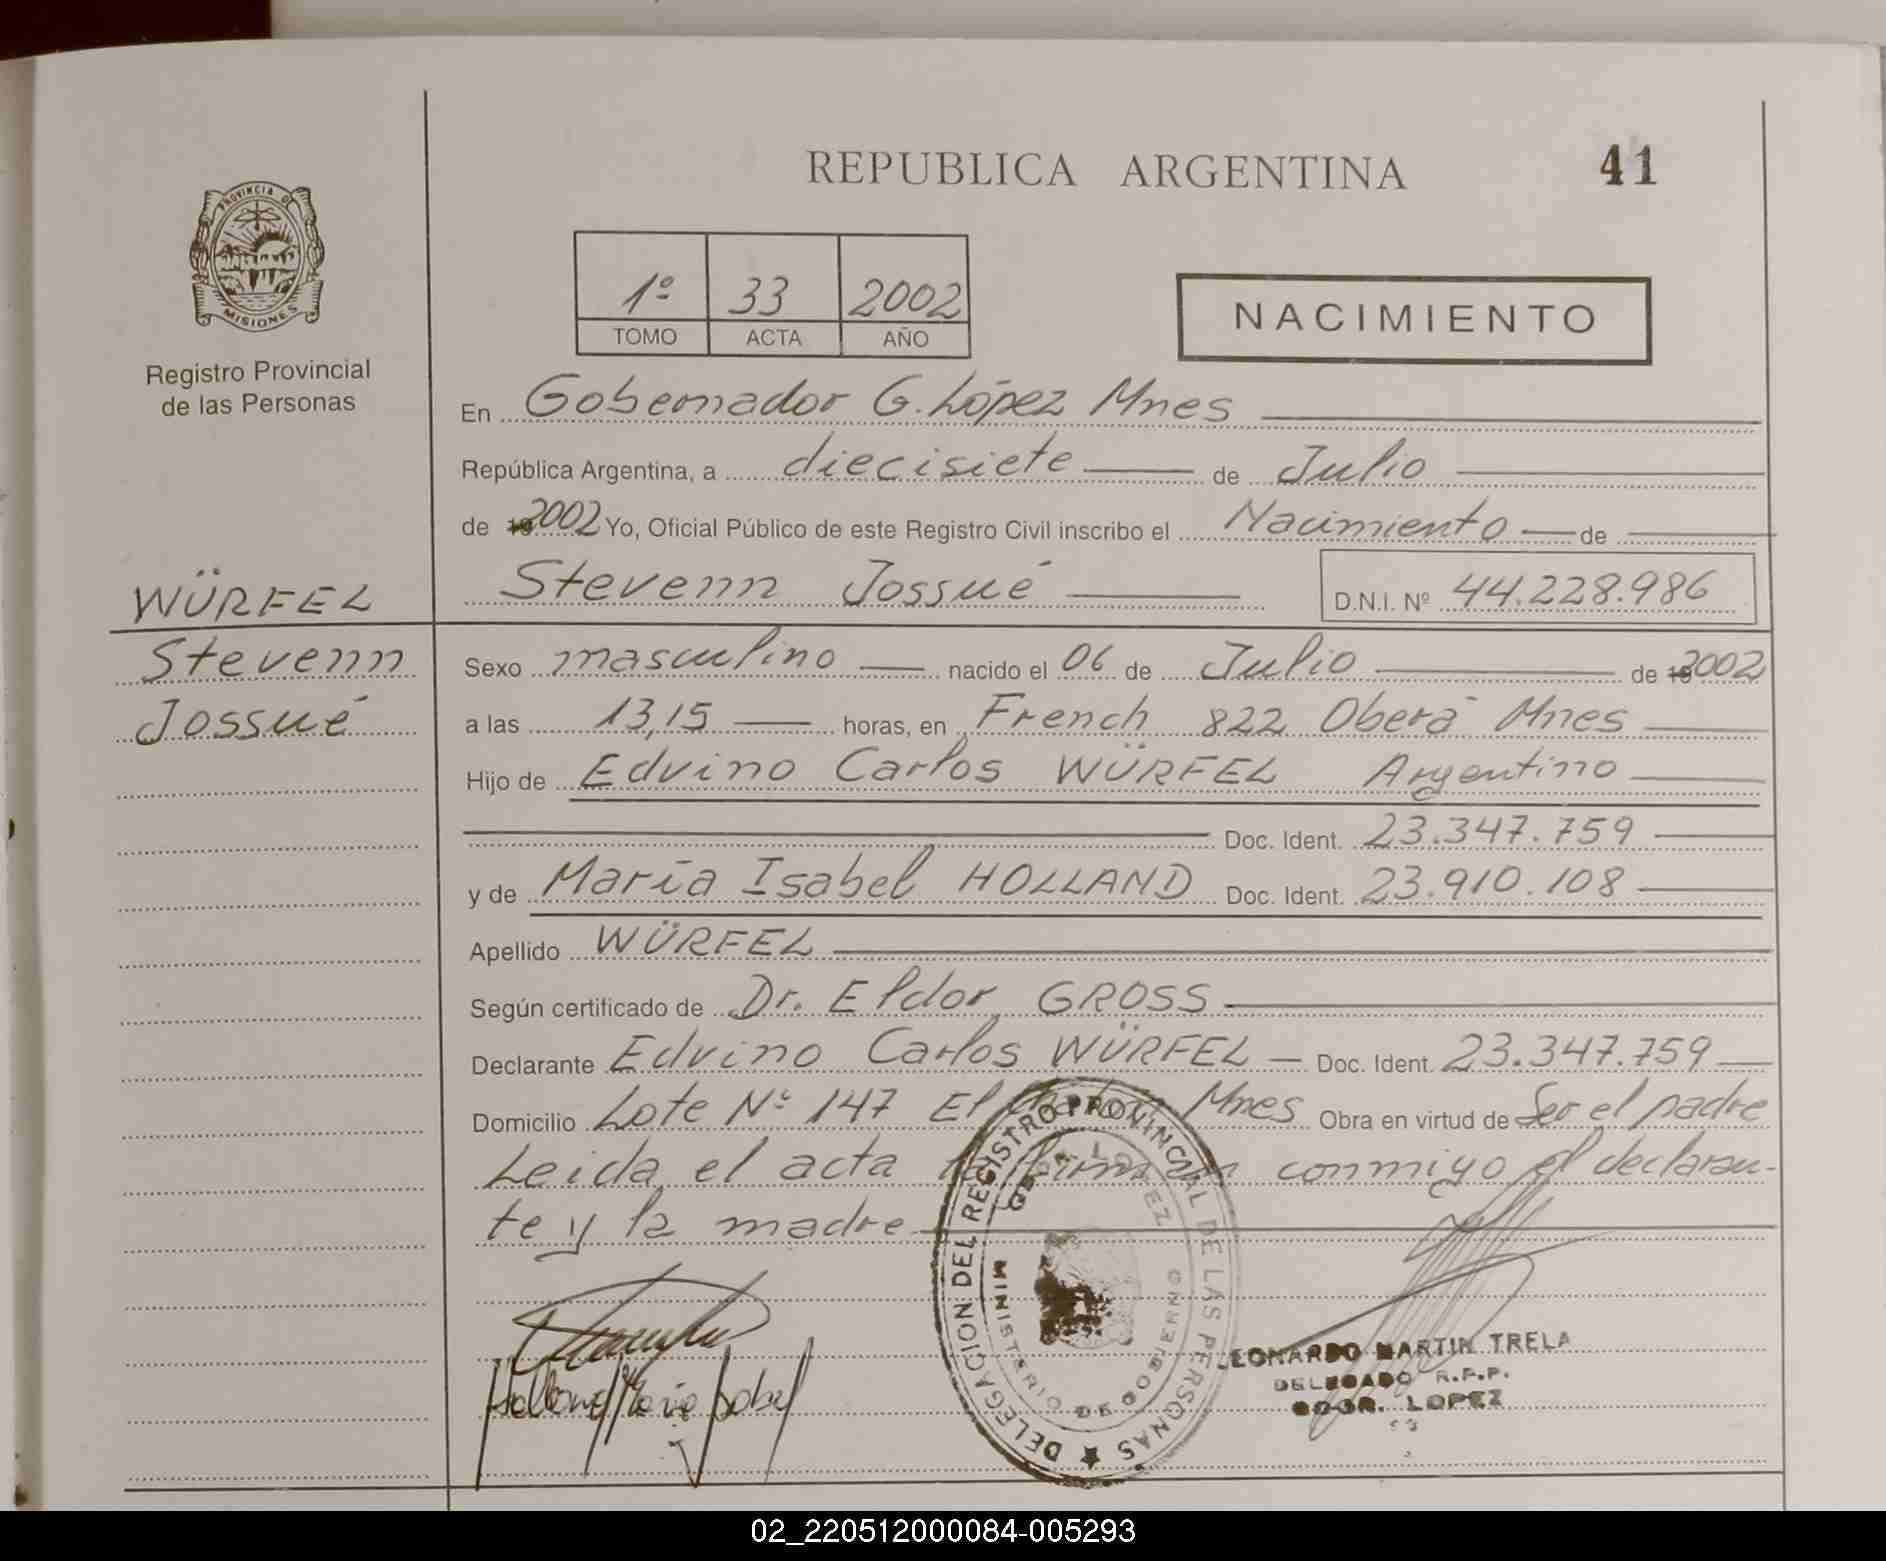 REPUBLICA ARGENTINA
41
PROVINCIA D
MISIONES
Registro Provincial
de las Personas
1º 33 2002
TOMO ACTA AÑO
NACIMIENTO
En Gobernador G. López Mnes
República Argentina, a diecisiete de Julio
de 19 2002 Yo, Oficial Público de este Registro Civil inscribo el Nacimiento de
Stevenn Jossué D.N.I. Nº 44.228.986
WÜRFEL
Stevenn
Jossué
Sexo masculino nacido el 06 de Julio de 19 2002
a las 13,15 horas, en French 822 Oberá Mnes
Hijo de Edvino Carlos WÜRFEL Argentino
Doc. Ident. 23.347.759
y de María Isabel HOLLAND Doc. Ident. 23.910.108
Apellido WÜRFEL
Según certificado de Dr. Eldor GROSS
Declarante Edvino Carlos WÜRFEL Doc. Ident. 23.347.759
Domicilio Lote Nº 147 El Mnes Obra en virtud de Ser el padre
Leida el acta la firman conmigo el declaran-
te y la madre
DELEGACION DEL REGISTRO PROVINCIAL DE LAS PERSONAS
GDOR. LOPEZ
MINISTERIO DE GOBIERNO
Holland María Isabel
LEONARDO MARTIN TRELA
DELEGADO R.P.P.
GDOR. LOPEZ
02_220512000084-005293